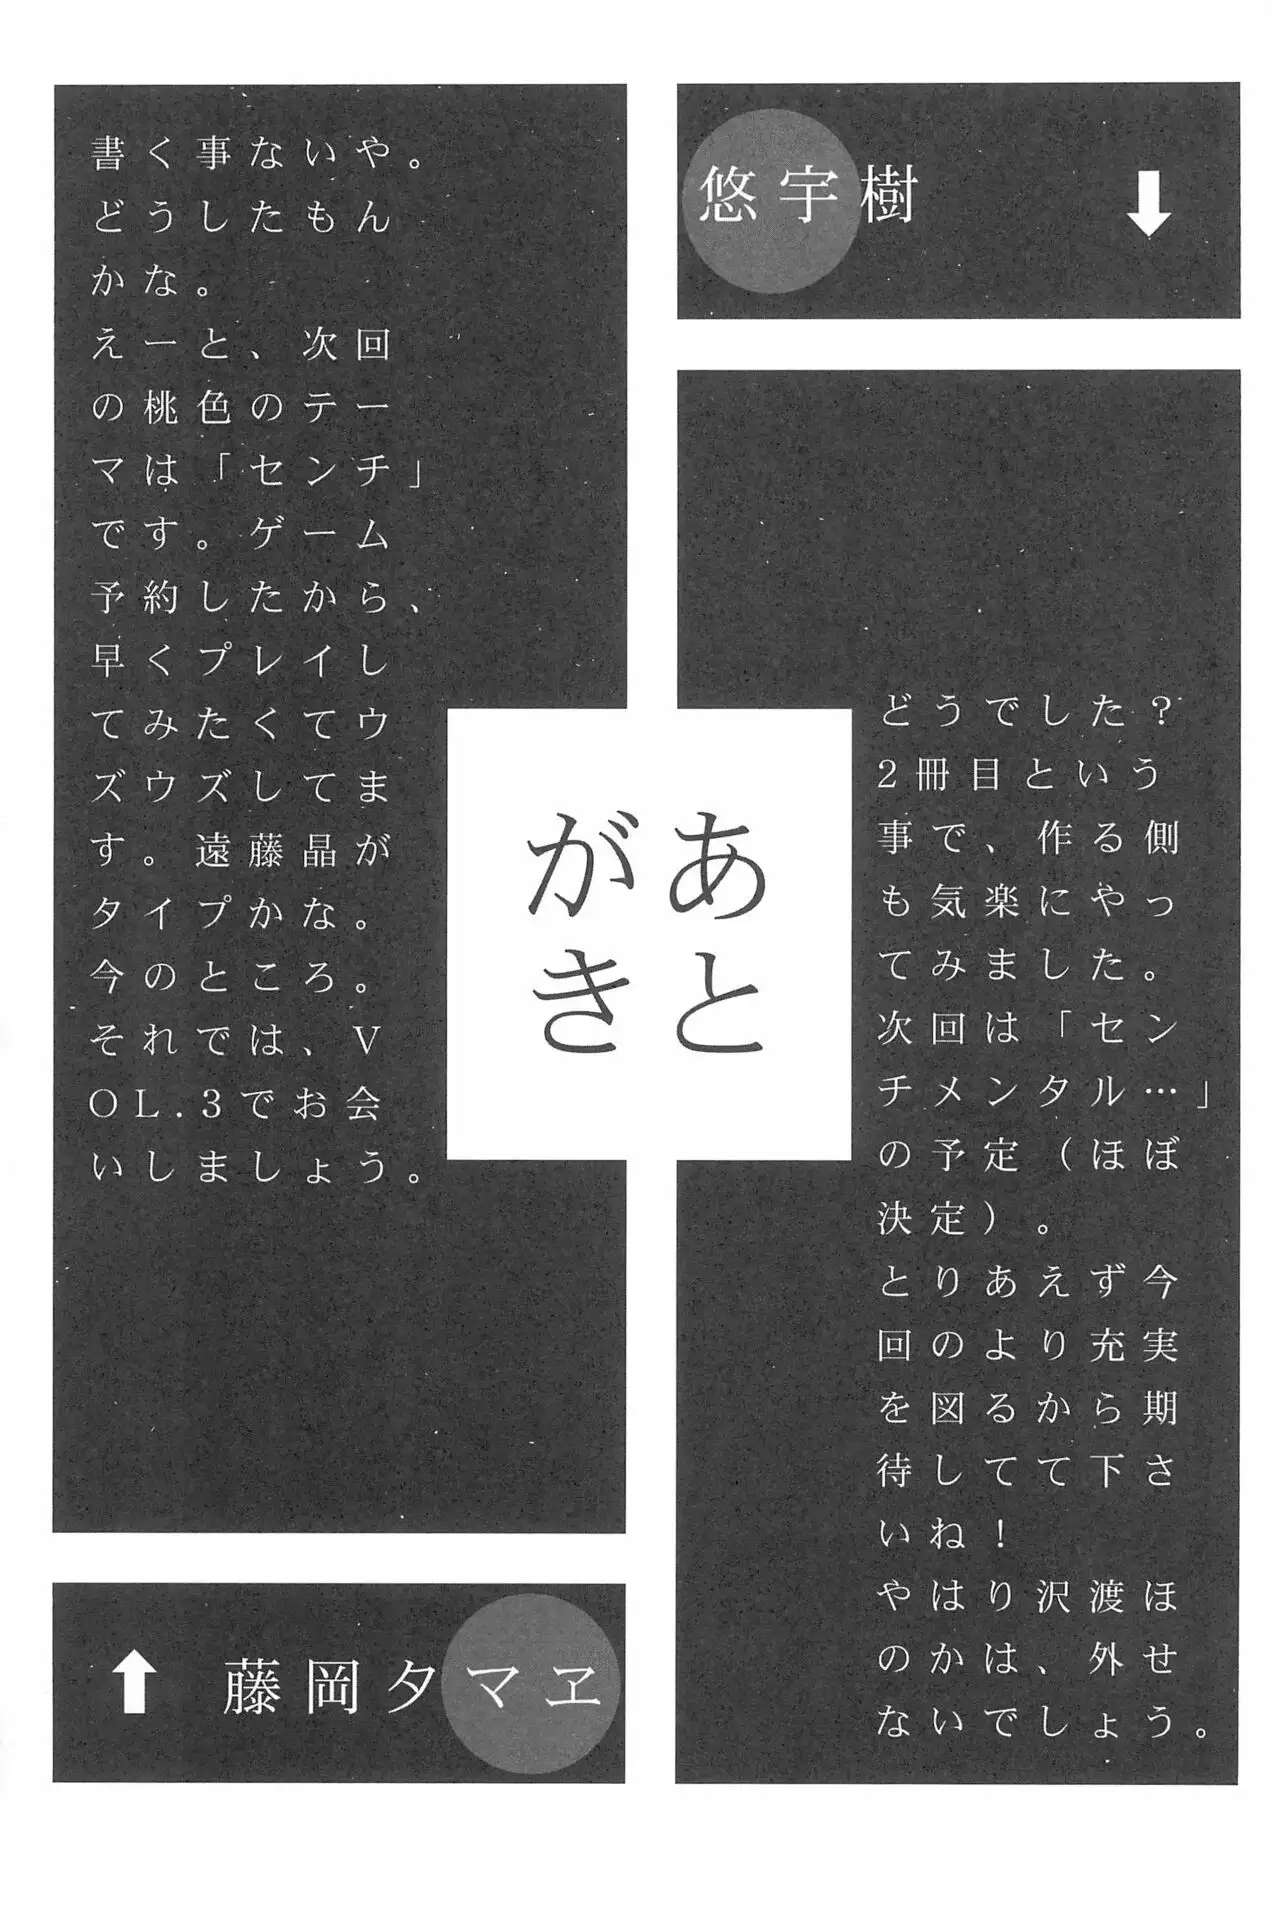 悠宇樹
どうでした？
2冊目という
事で、作る側
も気楽にやっ
てみました。
次回は「セン
チメンタル…」
の予定（ほぼ
決定）。
とりあえず今
回のより充実
を図るから期
待してて下さ
いね！
やはり沢渡ほ
のかは、外せ
ないでしょう。
あと
がき
書く事ないや。
どうしたもん
かな。
えーと、次回
の桃色のテー
マは「センチ」
です。ゲーム
予約したから、
早くプレイし
てみたくてウ
ズウズしてま
す。遠藤晶が
タイプかな。
今のところ。
それでは、V
OL.3でお会
いしましょう。
藤岡タマヱ